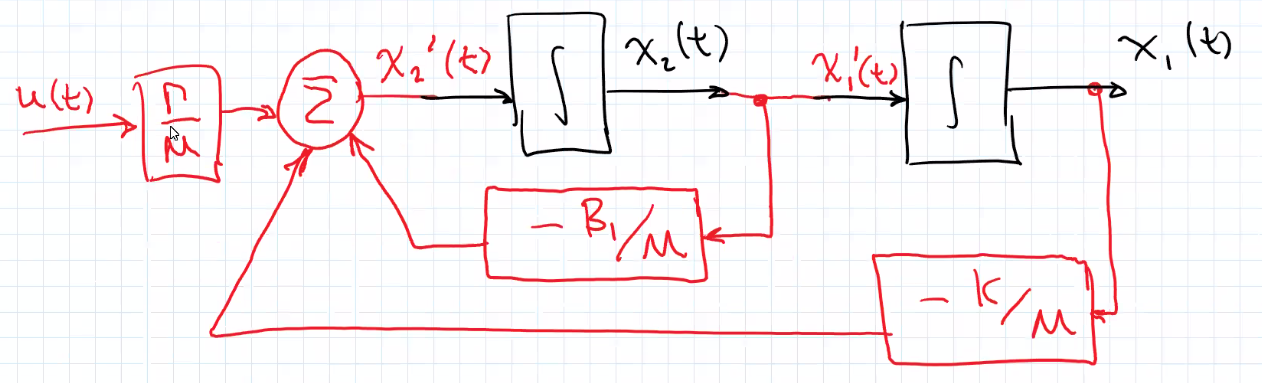 u(t)
Γ
M
Σ
x₂'(t)
∫
x₂(t)
x₁'(t)
∫
x₁(t)
- B₁/M
- K/M